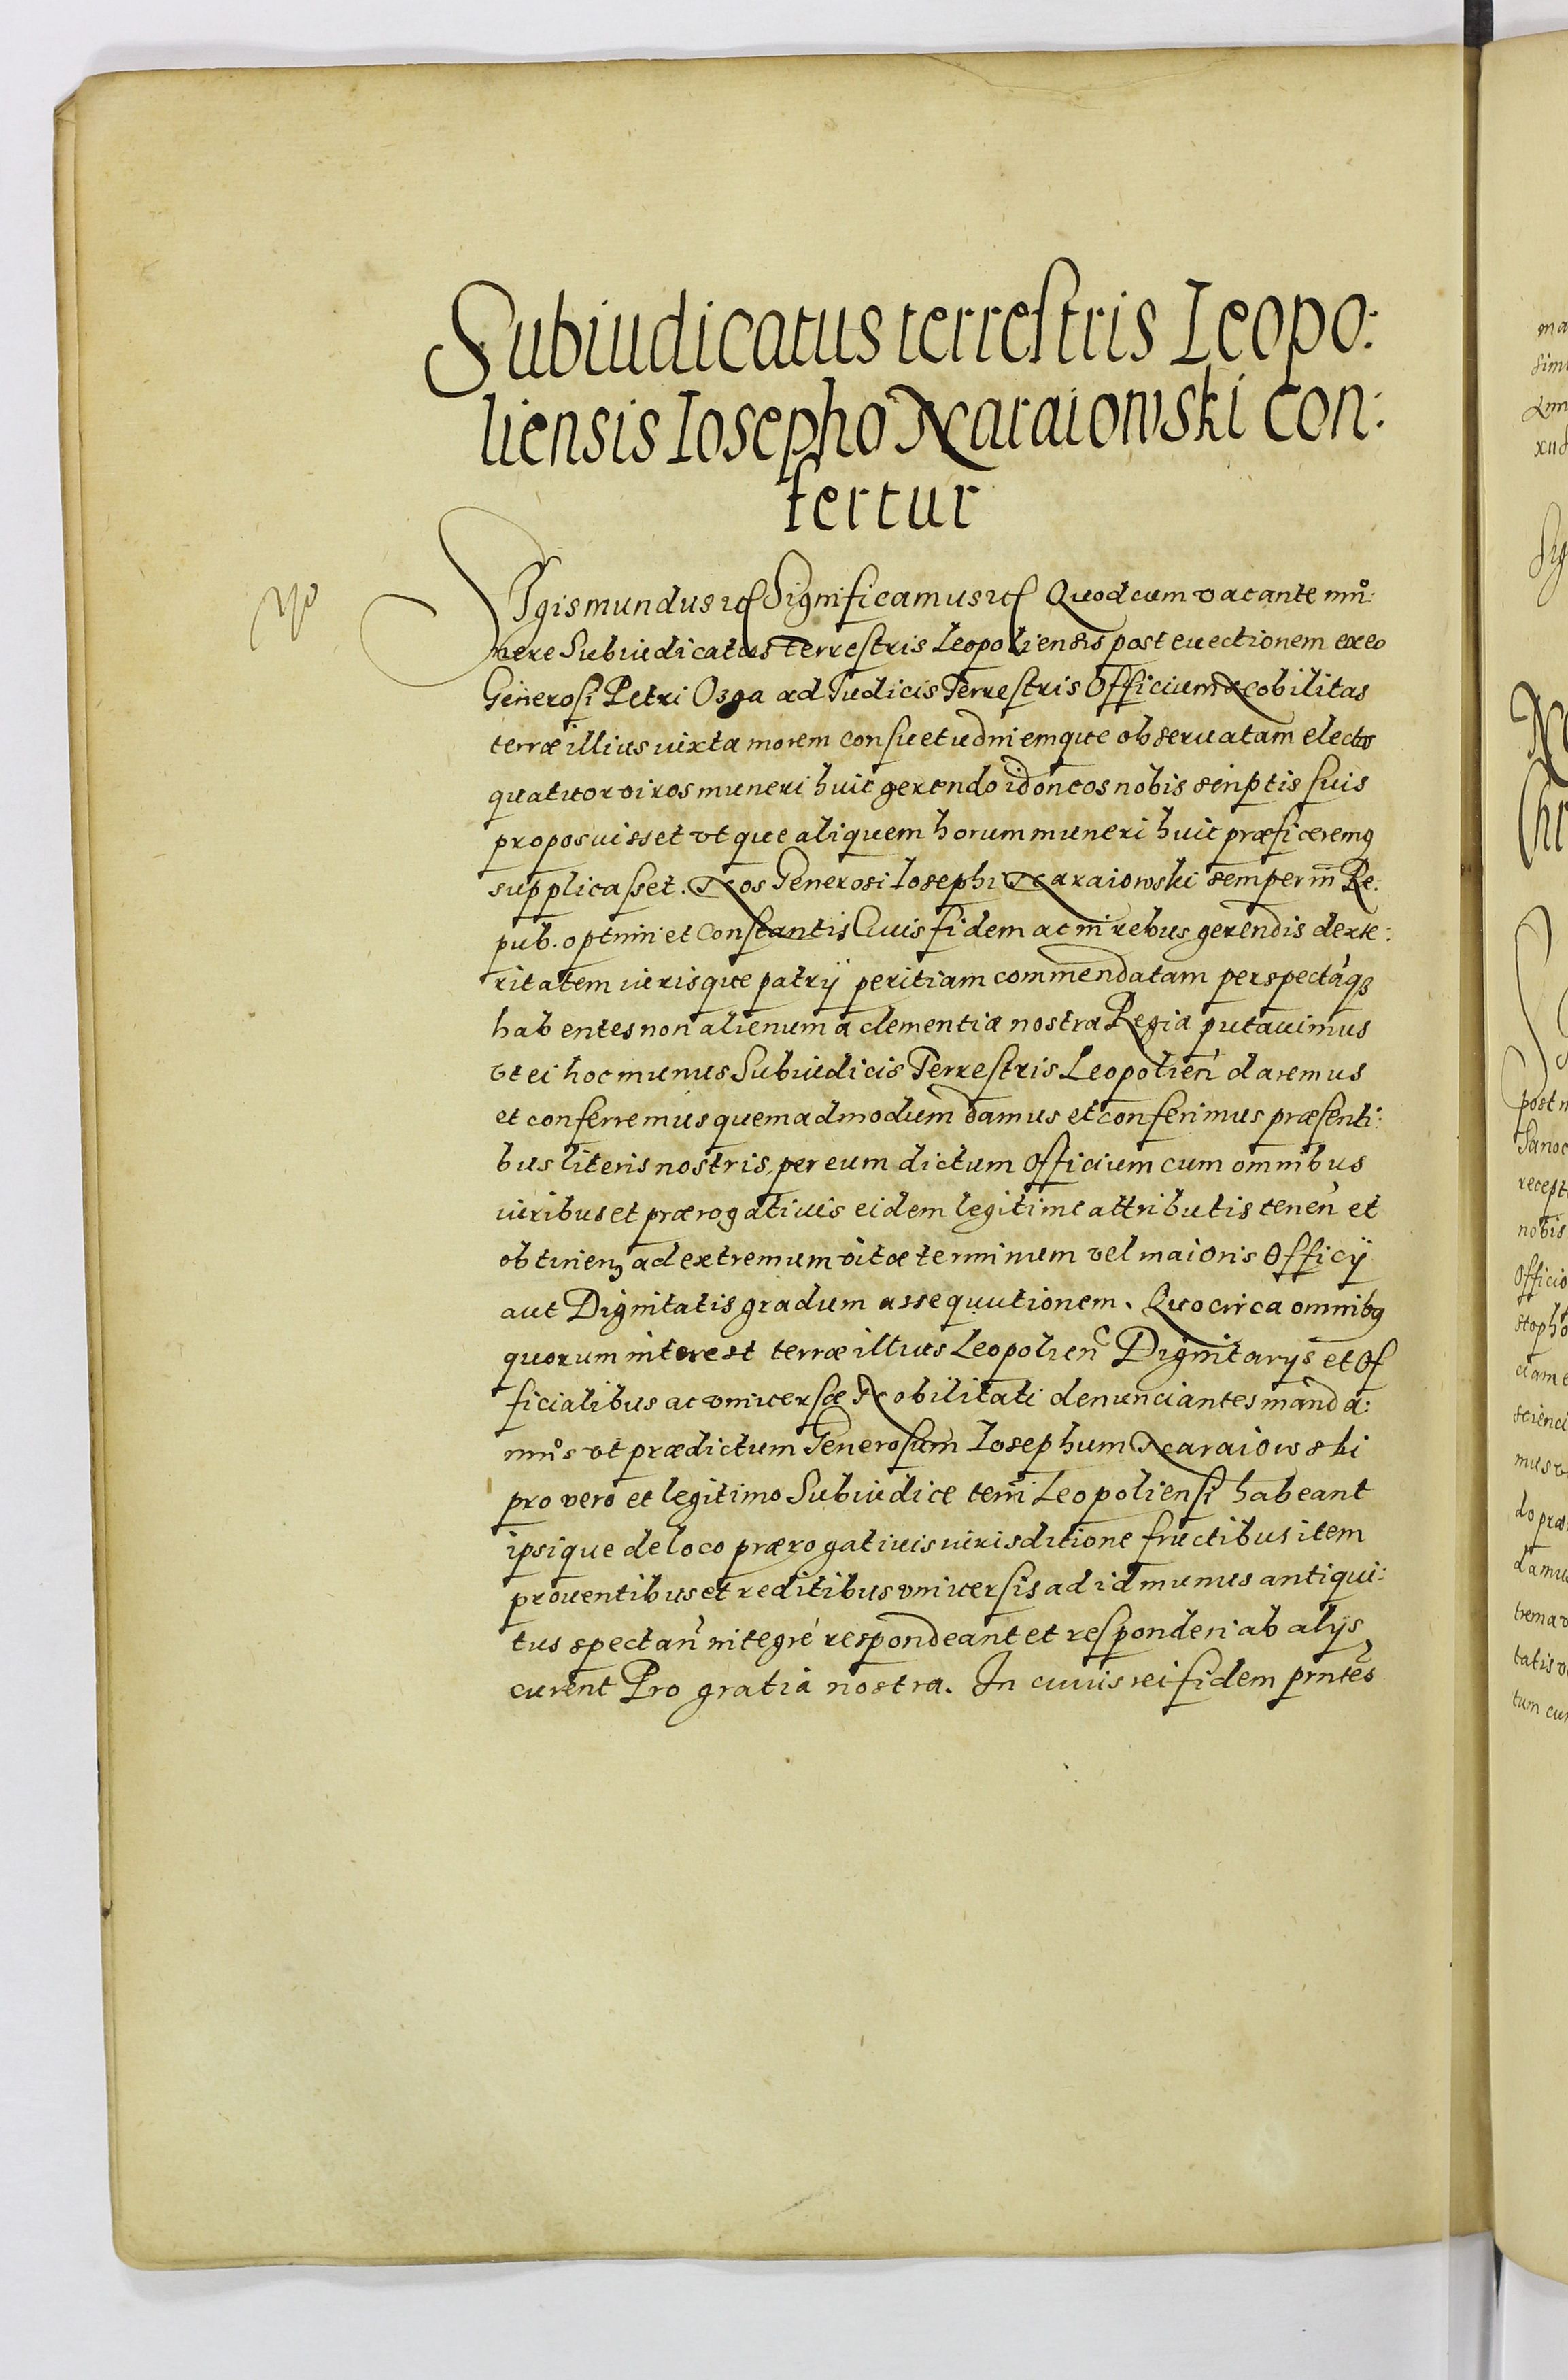 Subiudicatus terrestris Leopo:
liensis Iosepho Naraiowski con:
fertur
Sgismundus etc Significamus etc Quod cum vacante mu:
nere Subiudicatus terrestris Leopoliensis post euectionem ex eo
Generosi Petri Ozga ad Iudicis Terrestris Officium Nobilitas
terræ illius iuxta morem consuetudinemque obseruatam electos
quatuor viros muneri huic gerendo idoneos nobis scriptis suis
proposuisset vt que aliquem horum muneri huic præficeremq
supplicasset. Nos Generosi Iosephi Naraiowski semper in Re:
pub. optimi et Constantis Ciuis fidem ac in rebus gerendis dexte:
ritatem iurisque patrij peritiam commendatam perspectāqȝ
habentes non alienum a clementia nostra Regia putauimus
vt ei hoc munus Subiudicis Terrestris Leopolien̄ daremus
et conferremus quemadmodum damus et conferimus præsenti:
bus literis nostris, per eum dictum Officium cum omnibus
iuribus et prærogatiuis eidem legitime attributis tenen̄ et
obtinenȝ ad extremum vitæ terminum vel maioris Officij
aut Dignitatis gradum assequutionem. Quocirca omnibq
quorum interest terræ illius Leopolien̄ Dignitarijs et Of
ficialibus ac vniuersæ Nobilitati denunciantes manda:
mus vt prædictum Generosum Iosephum Naraiowski
pro vero et legitimo Subiudice terrī Leopoliensi habeant
ipsique de loco prærogatiuis iurisditione fructibus item
prouentibus et reditibus vniuersis ad id munus antiqui:
tus spectan̄ integrè respondeant et responderi ab alijs
curent Pro gratia nostra. In cuius rei fidem prntēs